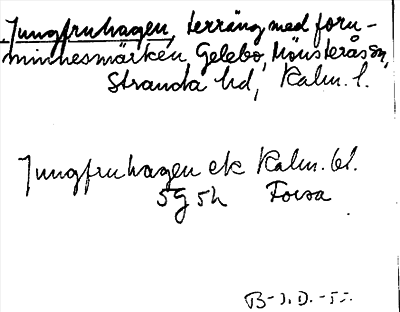 Jungfruhagen, terräng med forn-
minnesmärken, Gelebo, Mönsterås sn,
Stranda hd, Kalm. l.
Jungfruhagen ek Kalm. bl.
5g 5h Forsa
B-J.D.-55.